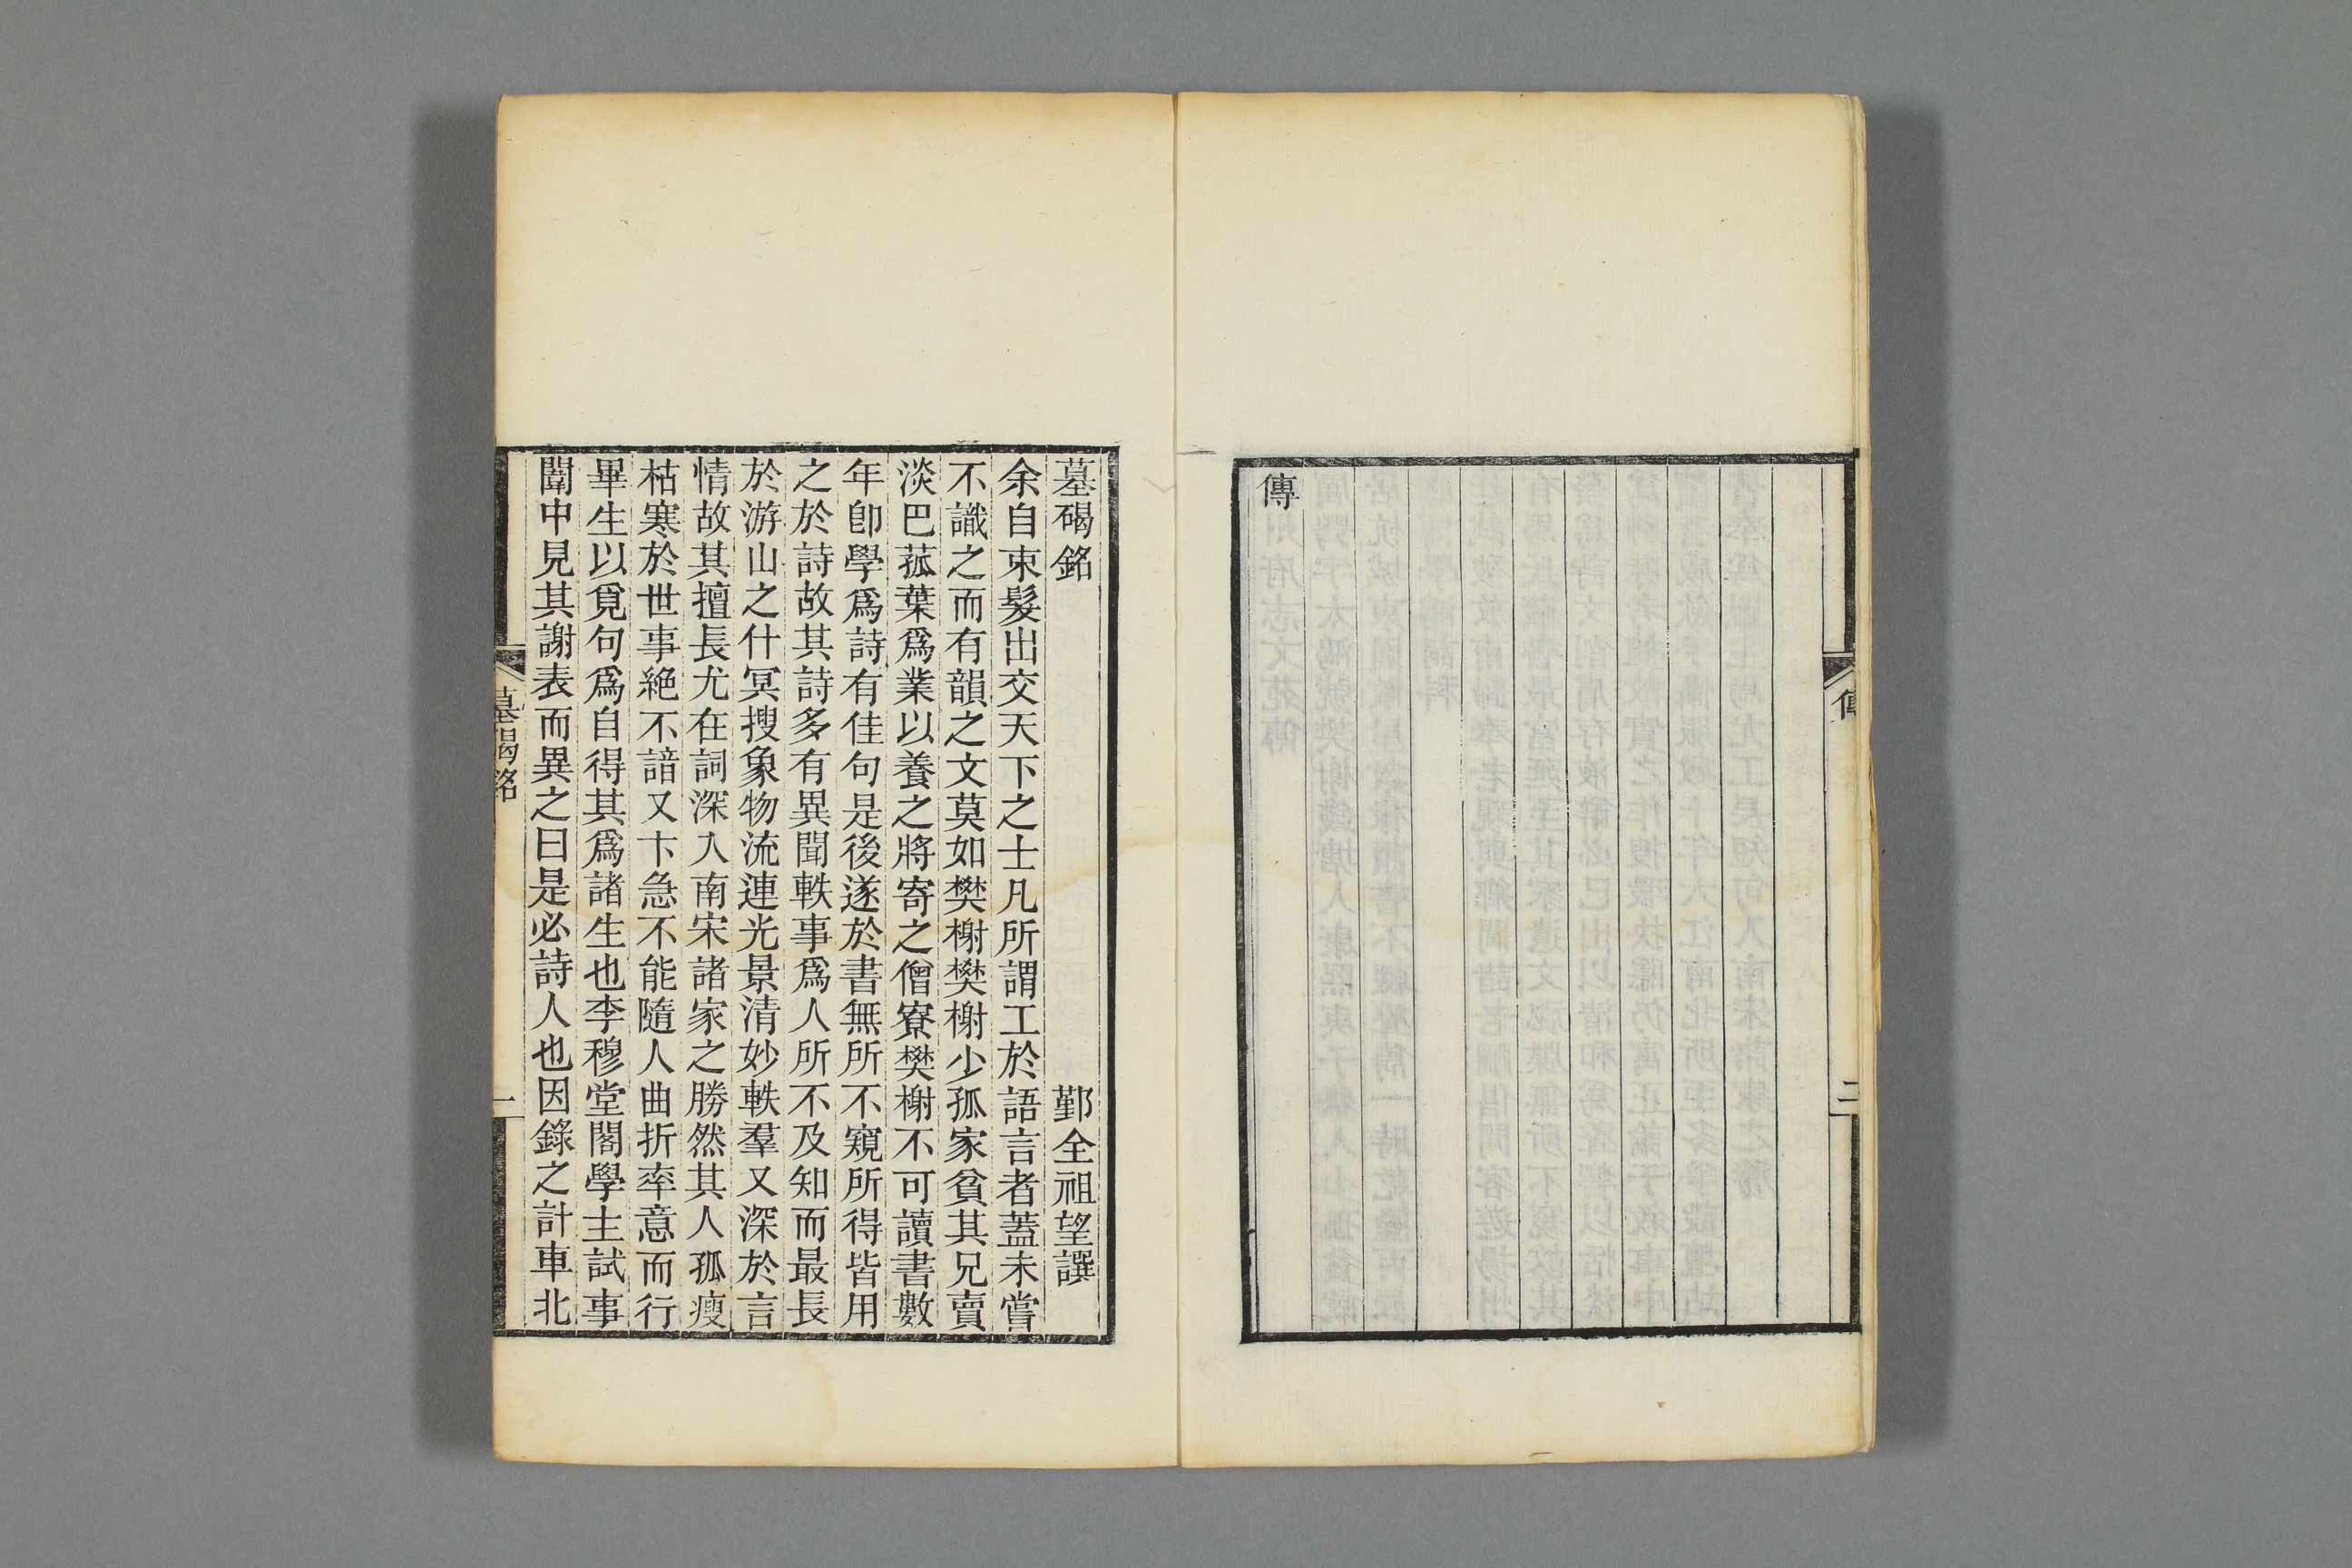 傳
二
傳
墓碣銘
鄞全祖望譔
余自束髮出交天下之士凡所謂工於語言者蓋未嘗
不識之而有韻之文莫如樊榭樊榭少孤家貧其兄賣
淡巴菰葉爲業以養之將寄之僧寮樊榭不可讀書數
年卽學爲詩有佳句是後遂於書無所不窺所得皆用
之於詩故其詩多有異聞軼事爲人所不及知而最長
於游山之什冥搜象物流連光景清妙軼羣又深於言
情故其擅長尤在詞深入南宋諸家之勝然其人孤瘦
枯寒於世事絶不諳又卞急不能隨人曲折率意而行
畢生以覓句爲自得其爲諸生也李穆堂閣學主試事
闈中見其謝表而異之曰是必詩人也因錄之計車北
墓碣銘
一